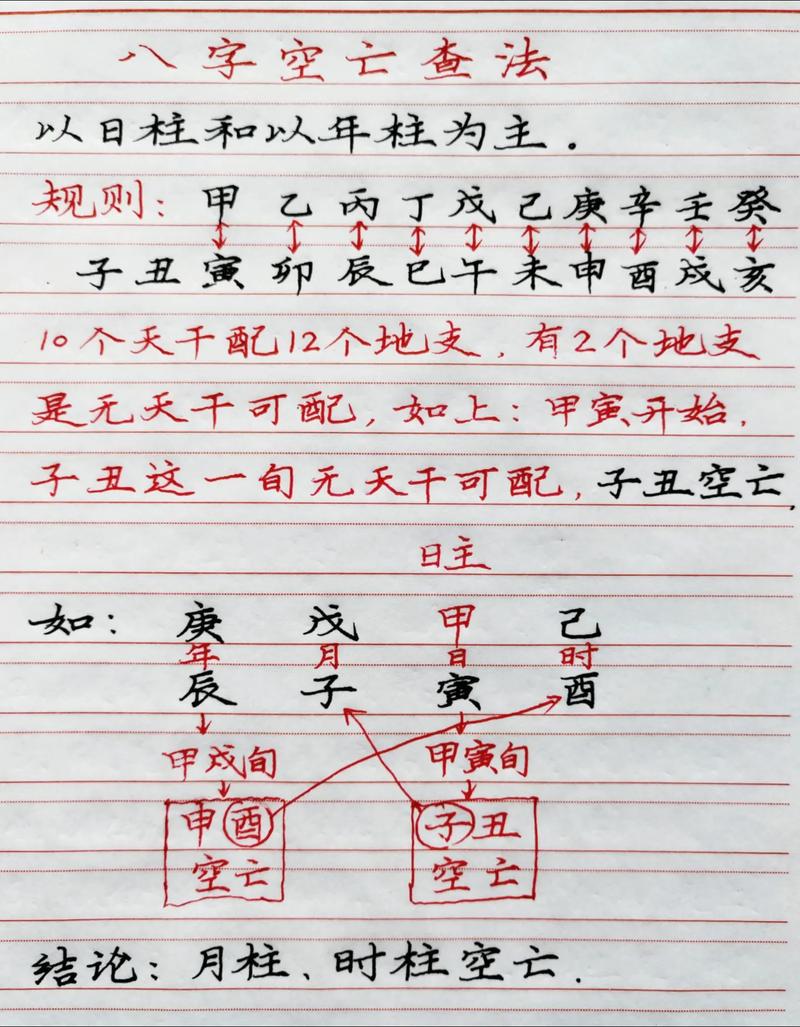 八字空亡查法
以日柱和以年柱为主.
规则: 甲 乙 丙 丁 戊 己 庚 辛 壬 癸
子 丑 寅 卯 辰 巳 午 未 申 酉 戌 亥
10个天干配12个地支, 有2个地支
是无天干可配, 如上: 甲寅开始,
子丑这一旬无天干可配, 子丑空亡.
日主
如: 庚 戊 甲 己
年 月 日 时
辰 子 寅 酉
甲戌旬 甲寅旬
申酉 子丑
空亡 空亡
结论: 月柱、时柱空亡.